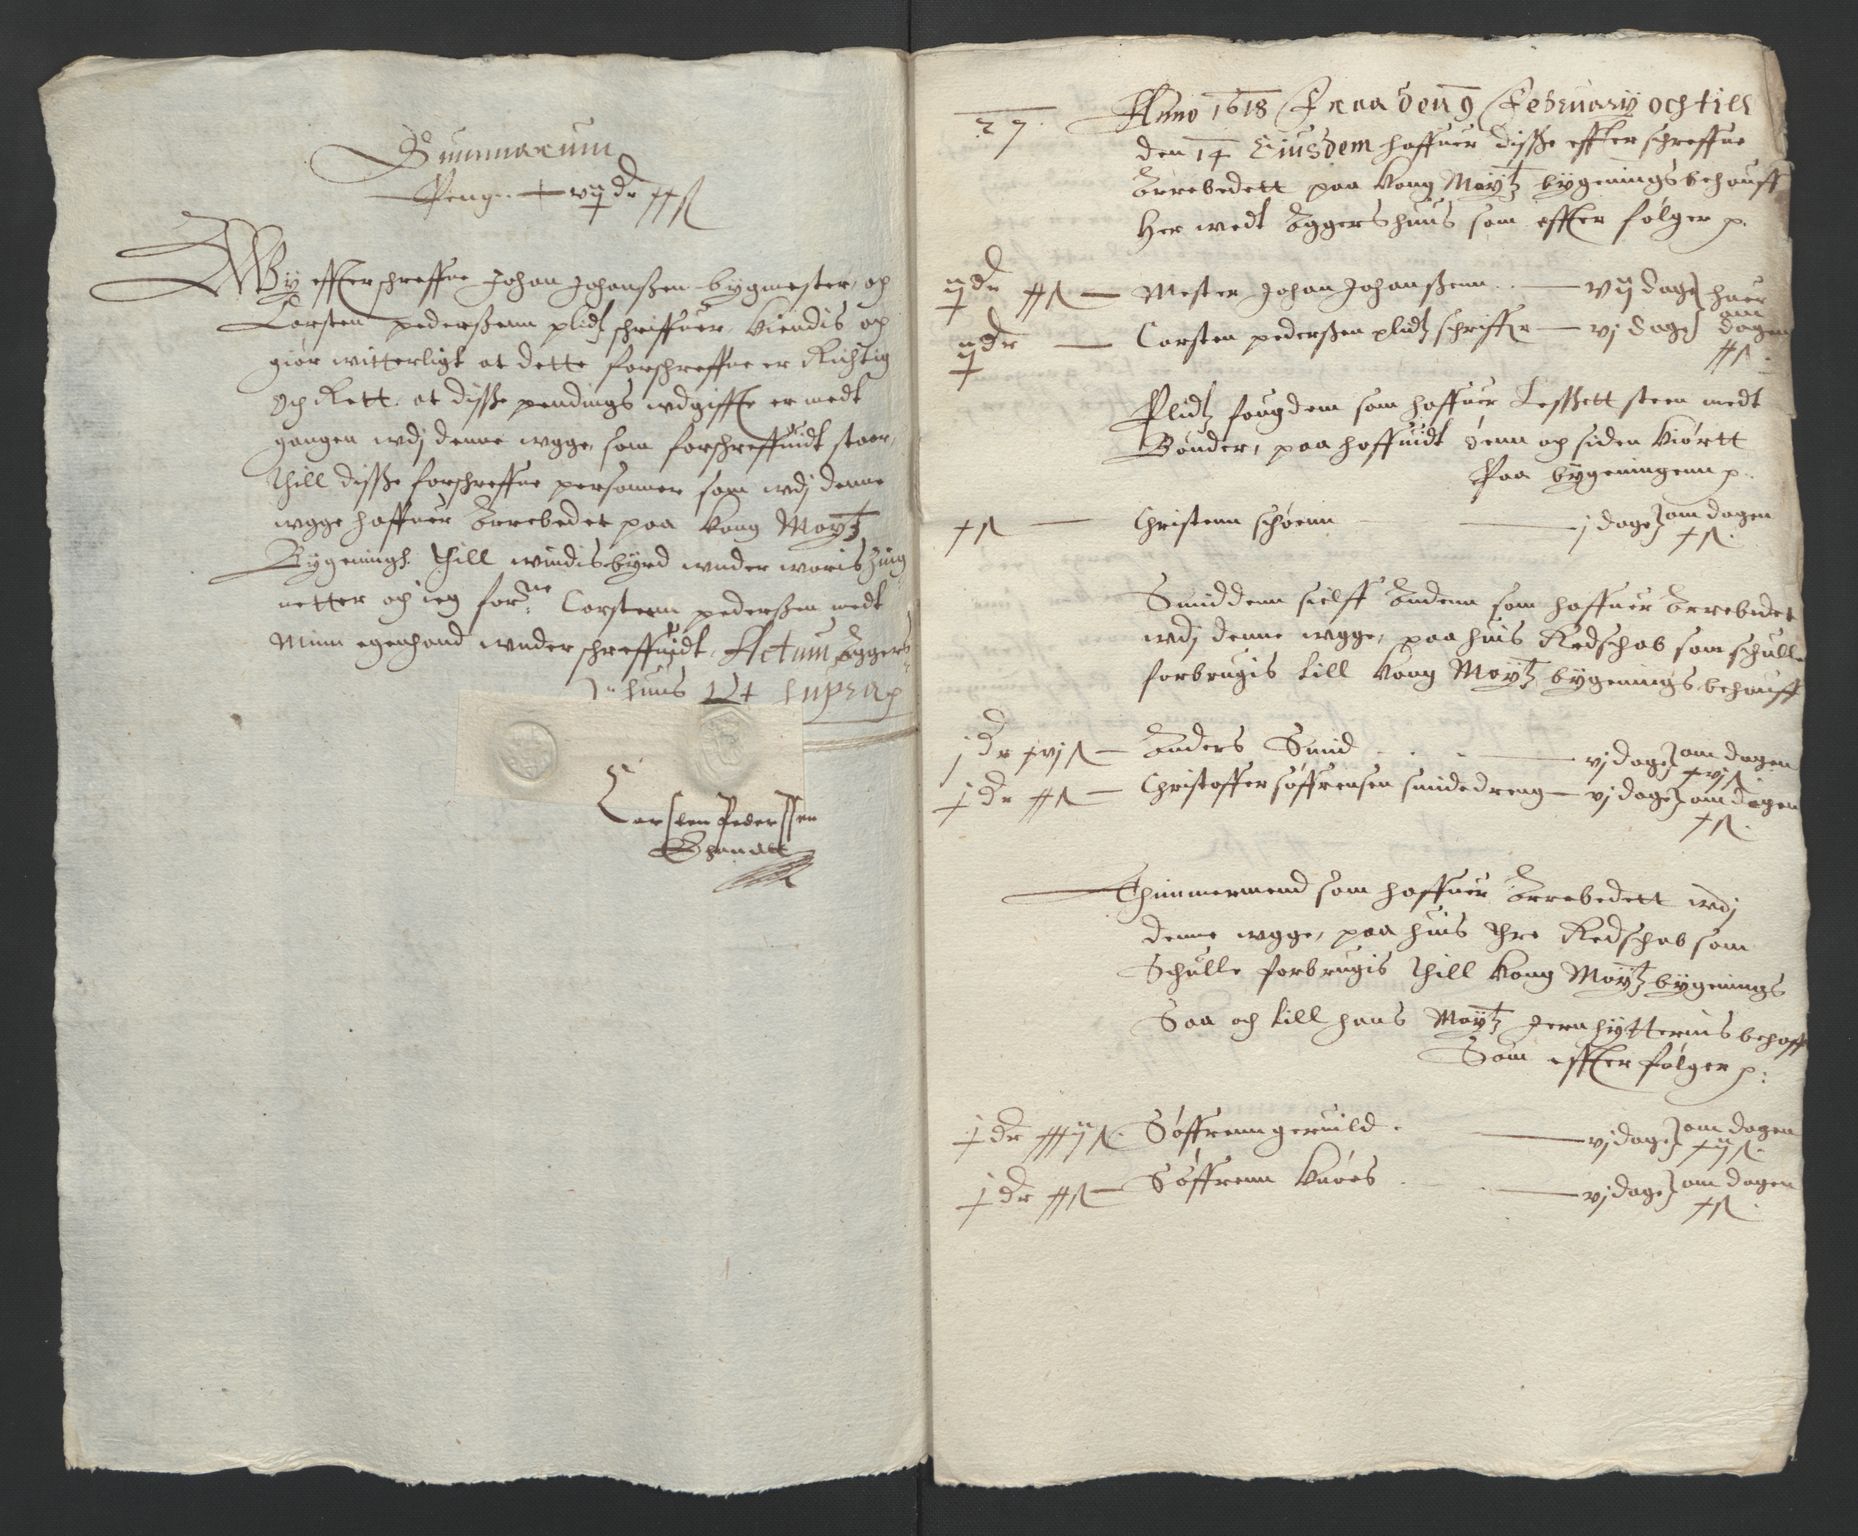 Summarum
Peng. xvij dr xx ß
Wy effterschreffne Johan Johanßen bygmester, och
Carsten pederßenn plidtz schriffuer, kiendis och
giør witterligt at dette forschreffne er Richtig
Och Rett, at disße pendings wdgifft er medt
gangen wdj denne wgge, som forschreffuidt staar,
thill disße forschreffne personner som wdj denne
wgge haffuer Arrebedet paa kong Maytz
Bygenings. thill windisbyrd wnder woris Zing
netter och ieg forne Carstenn pederßen medt
Minn egenhand wnderschreffuidt, Actum Aggers
huus ut supra p
Carsten Pederssen
Egenhandt
27
Anno 1618 Fraa den 9 February och till
den 14 Eiusdem haffuer disße effterschreffne
Arrebedett paa kong Maytz bygenings behouff
Her wedt Aggershuus som effter følger p.
iij dr xx ß — Mester Johan Johanßenn — vij dage huer
om dagen
iij dr — Carsten pederßen plidtz schriffer — vj dage
xx ß
Plidtz fougdem som haffuer Lesßett steen medt
Bønder, paa hoffuidt øenn och siden kiørtt
Paa bygeningenn p.
x ß — Christenn schøenn — j dage om dagen
x ß.
Smiddenn sielff Andenn som haffuer Arrebedet
wdj denne wgge, paa huis Redschab som schulle
forbrugis till kong Maytz bygenings behouff
j dr xvj ß — Anders Smid — vj dage om dagen
xvj ß
j dr xx ß — Christoffer søffrensen smidedreng — vj dage om dagen
x ß.
Thimmermend som haffuer Arrebedett wdj
denne wgge, paa huis thre Redschab som
Schulle forbrugis thill kong Maytz bygenings
Saa och till hans Maytz Jernhytterns behoff
Som effter følger p:
j dr xxxij ß. Søffrenn geruild — vj dage om dagen
xij ß.
j dr xx ß — Søffrenn kuoes — vj dage om dagen
x ß.